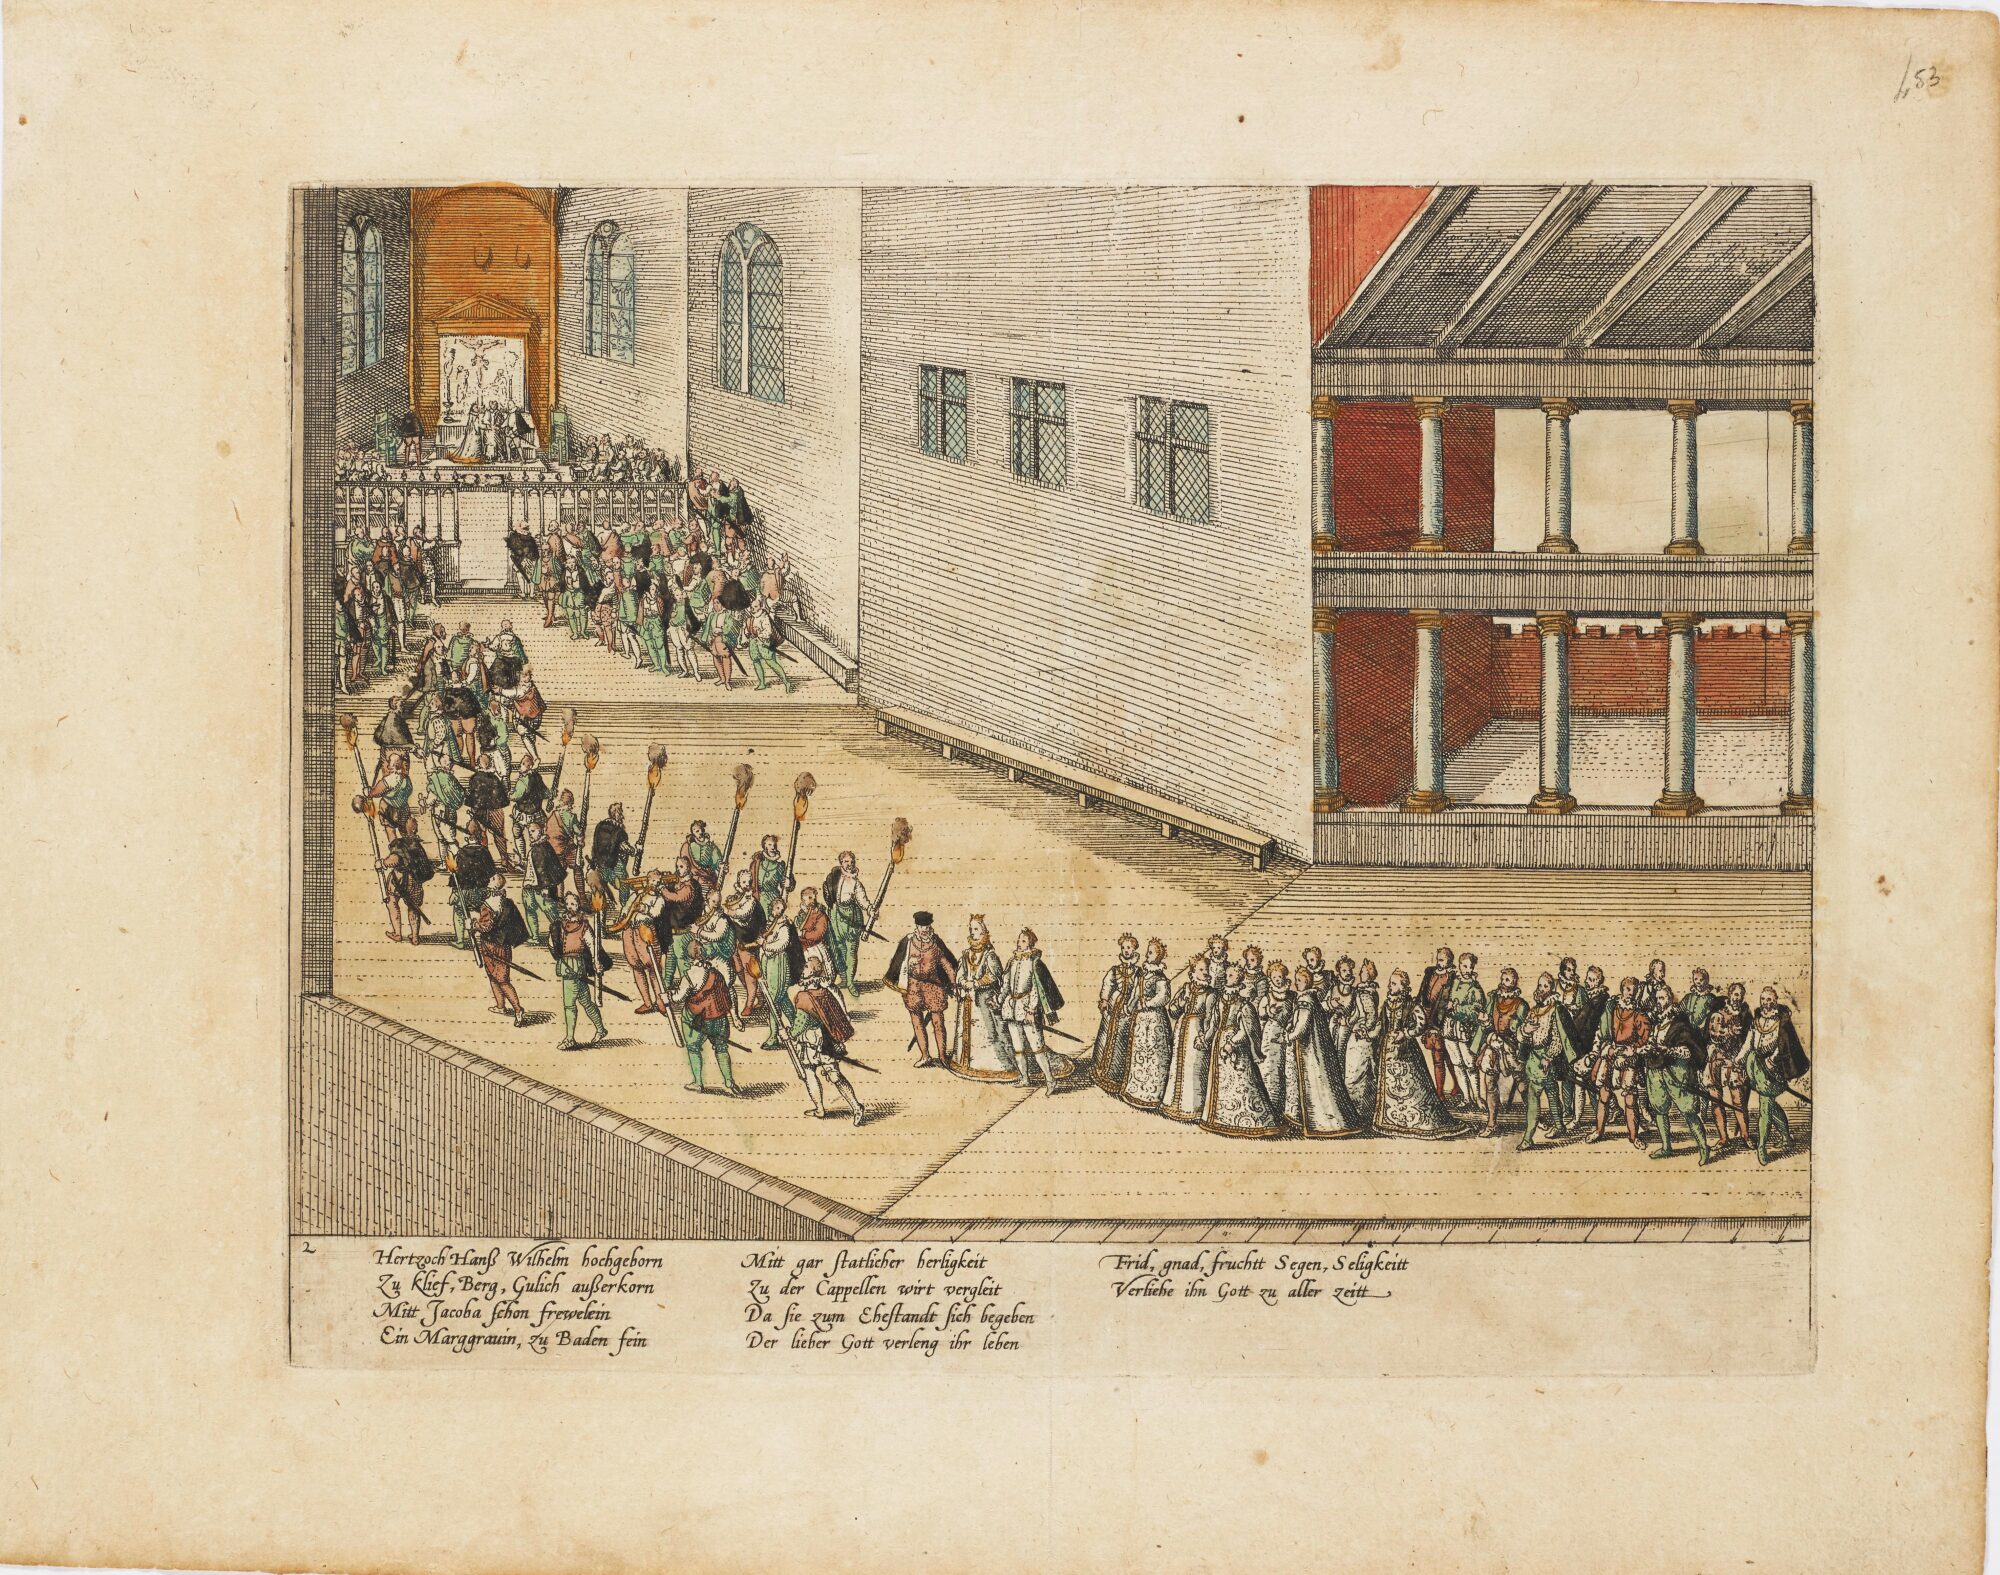 453
2
Hertzoch Hanß Wilhelm hochgeborn
Zu Klief, Berg, Gulich außerkorn
Mitt Jacoba schon frewelein
Ein Marggrauin, zu Baden fein
Mitt gar statlicher herligkeit
Zu der Cappellen wirt vergleit
Da sie zum Ehestandt sich begeben
Der lieber Gott verleng ihr leben
Frid, gnad, fruchtt Segen, Seligkeitt
Verliehe ihn Gott zu aller zeitt